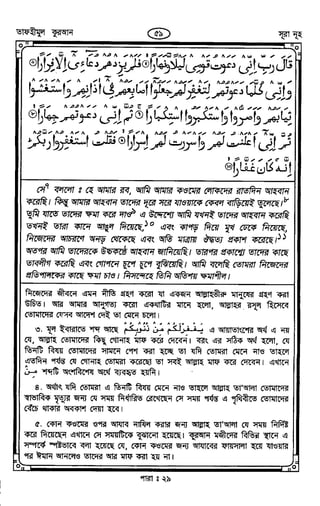 তাফহীমুল কুরআন
৫৯
সূরা নূহ
قَالَ رَبِّ إِنِّي دَعَوْتُ قَوْمِي لَيْلًا وَنَهَارًا ۝ فَلَمْ يَزِدْهُمْ دُعَاءِي إِلَّا فِرَارًا ۝
وَإِنِّي كُلَّمَا دَعَوْتُهُمْ لِتَغْفِرَ لَهُمْ جَعَلُوا أَصَابِعَهُمْ فِي آذَانِهِمْ وَاسْتَغْشَوْا
ثِيَابَهُمْ وَأَصَرُّوا وَاسْتَكْبَرُوا اسْتِكْبَارًا ۝ ثُمَّ إِنِّي دَعَوْتُهُمْ جِهَارًا ۝
ثُمَّ إِنِّي أَعْلَنْتُ لَهُمْ وَأَسْرَرْتُ لَهُمْ إِسْرَارًا ۝ فَقُلْتُ اسْتَغْفِرُوا رَبَّكُمْ
إِنَّهُ كَانَ غَفَّارًا ۝
সে বললো ঃ হে আমার রব, আমি আমার কওমের লোকদের রাতদিন আহবান
করেছি। কিন্তু আমার আহবান তাদের দূরে সরে যাওয়াকে কেবল বাড়িয়েই তুলেছে।
তুমি যাতে তাদের ক্ষমা করে দাও এ উদ্দেশ্যে আমি যখনই তাদের আহবান করেছি
তখনই তারা কানে আঙুল দিয়েছে, এবং কাপড় দিয়ে মুখ ঢেকে নিয়েছে,
নিজেদের আচরণে অনড় থেকেছে এবং অতি মাত্রায় ঔদ্ধত্য প্রকাশ করেছে।
অতপর আমি তাদেরকে উচ্চকণ্ঠে আহবান জানিয়েছি। তারপর প্রকাশ্যে তাদের কাছে
তাবলীগ করেছি এবং গোপনে চুপে চুপে বুঝিয়েছি। আমি বলেছি তোমরা নিজেদের
প্রতিপালকের কাছে ক্ষমা চাও। নিসন্দেহে তিনি অতিশয় ক্ষমাশীল।
নিজেদের জীবনে এমন নীতি গ্রহণ করো যা একজন আল্লাহভীরু মানুষের গ্রহণ করা
উচিত। আর আমার আনুগত্য করো একথাটির মানে হলো, আল্লাহর রসূল হিসেবে
তোমাদের যেসব আদেশ দেই তা মেনে চলো।
৩. মূল ইবারতে শব্দ আছে يَغْفِرْ لَكُمْ مِنْ ذُنُوبِكُمْ এ আয়াতাংশের অর্থ এ নয়
যে, আল্লাহ তোমাদের কিছু গোনাহ মাফ করে দেবেন। বরং এর সঠিক অর্থ হলো, যে
তিনটি বিষয় তোমাদের সামনে পেশ করা হচ্ছে তা যদি তোমরা মেনে নাও তাহলে
এতদিন পর্যন্ত যে গোনাহ তোমরা করেছো তা সবই আল্লাহ মাফ করে দেবেন। এখানে
مِنْ শব্দটি অংশবিশেষ অর্থে ব্যবহৃত হয়নি।
৪. অর্থাৎ যদি তোমরা এ তিনটি বিষয় মেনে নাও তাহলে আল্লাহ তা'আলা তোমাদের
স্বাভাবিক মৃত্যুর জন্য যে সময় নির্ধারিত রেখেছেন সে সময় পর্যন্ত এ পৃথিবীতে তোমাদের
বেঁচে থাকার অবকাশ দেয়া হবে।
৫. কোন কওমের ওপর আযাব নাযিল করার জন্য আল্লাহ তা'আলা যে সময় নির্দিষ্ট
করে দিয়েছেন এখানে সে সময়টিকে বুঝানো হয়েছে। কুরআন মজীদের বিভিন্ন স্থানে এ
সম্পর্কে স্পষ্টভাবে বলা হয়েছে যে, কোন কওমের জন্য আযাবের ফায়সালা হয়ে যাওয়ার
পর ঈমান আনলেও তাদের আর মাফ করা হয় না।
পারা ঃ ২৯